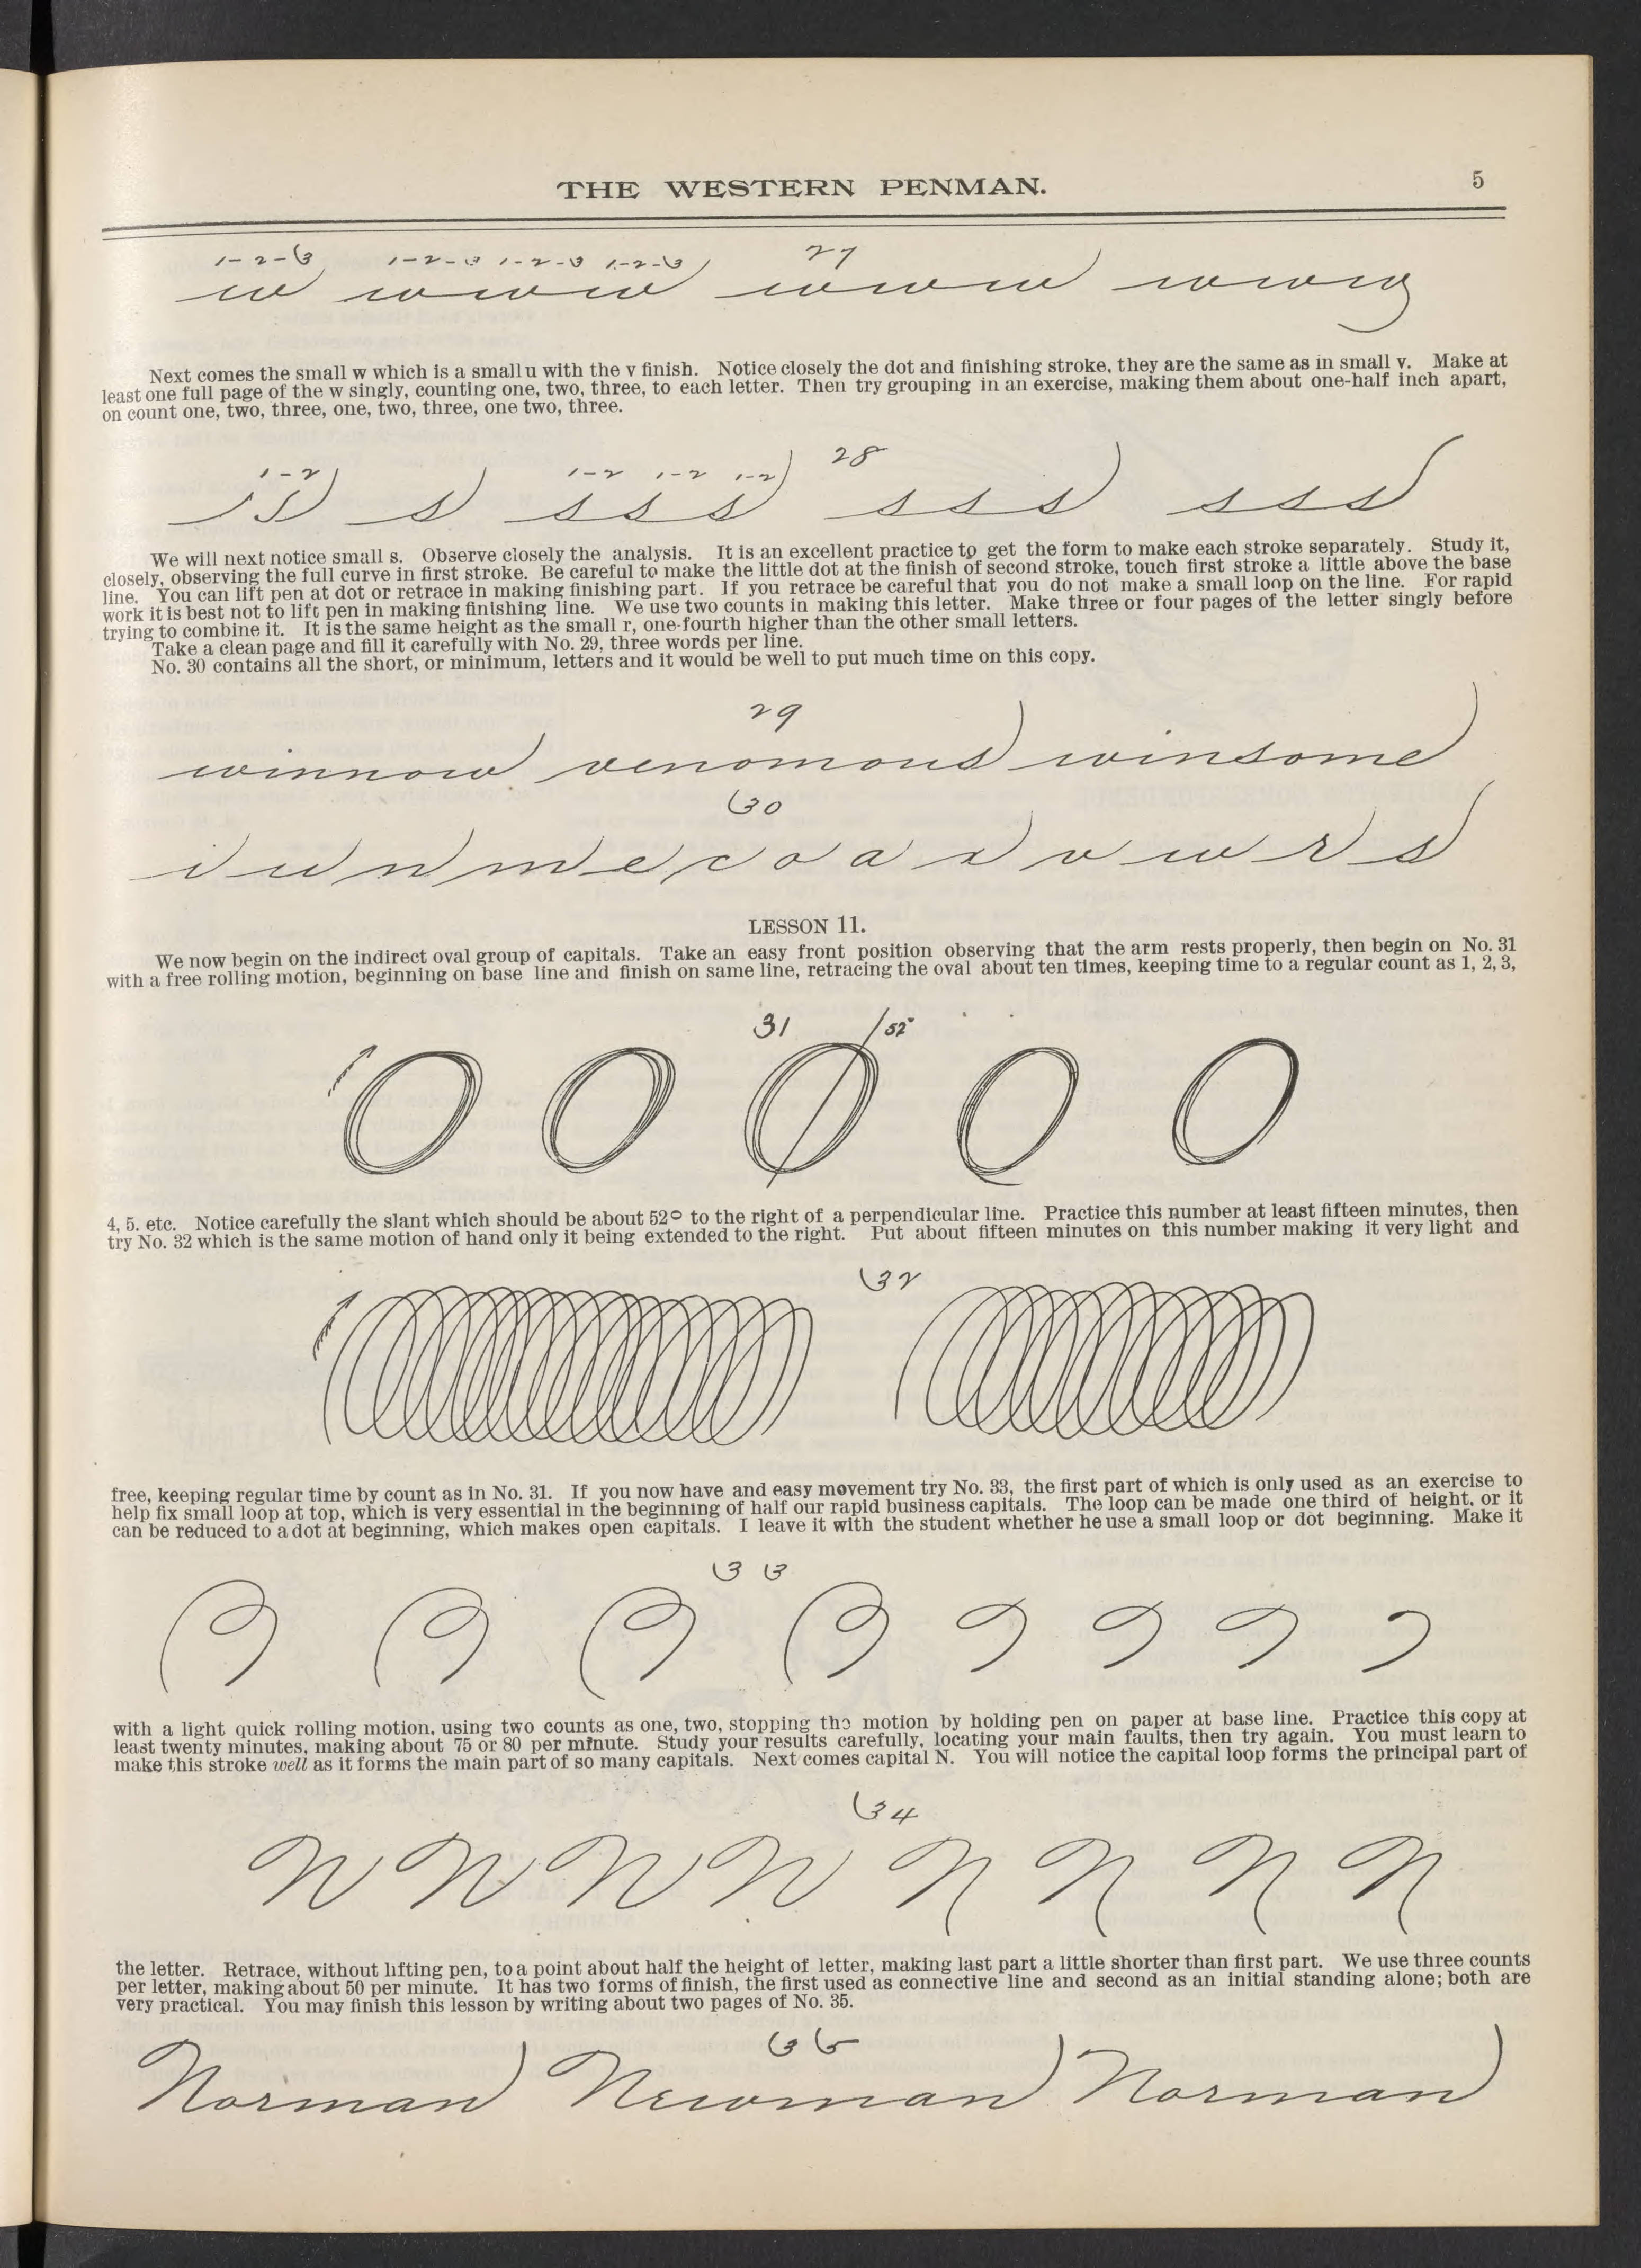 THE WESTERN PENMAN. 5
1-2-3 1-2-3 1-2-3 1-2-3 27
w w w w w w w w w w w
Next comes the small w which is a small u with the v finish. Notice closely the dot and finishing stroke, they are the same as in small v. Make at
least one full page of the w singly, counting one, two, three, to each letter. Then try grouping in an exercise, making them about one-half inch apart,
on count one, two, three, one, two, three, one two, three.
1-2 1-2 1-2 1-2 28
s s s s s s s s s s s
We will next notice small s. Observe closely the analysis. It is an excellent practice to get the form to make each stroke separately. Study it,
closely, observing the full curve in first stroke. Be careful to make the little dot at the finish of second stroke, touch first stroke a little above the base
line. You can lift pen at dot or retrace in making finishing part. If you retrace be careful that you do not make a small loop on the line. For rapid
work it is best not to lift pen in making finishing line. We use two counts in making this letter. Make three or four pages of the letter singly before
trying to combine it. It is the same height as the small r, one-fourth higher than the other small letters.
Take a clean page and fill it carefully with No. 29, three words per line.
No. 30 contains all the short, or minimum, letters and it would be well to put much time on this copy.
29
winnow venomous winsome
30
i u n m e c o a x v w r s
LESSON 11.
We now begin on the indirect oval group of capitals. Take an easy front position observing that the arm rests properly, then begin on No. 31
with a free rolling motion, beginning on base line and finish on same line, retracing the oval about ten times, keeping time to a regular count as 1, 2, 3,
31 52°
4, 5. etc. Notice carefully the slant which should be about 52° to the right of a perpendicular line. Practice this number at least fifteen minutes, then
try No. 32 which is the same motion of hand only it being extended to the right. Put about fifteen minutes on this number making it very light and
32
free, keeping regular time by count as in No. 31. If you now have and easy movement try No. 33, the first part of which is only used as an exercise to
help fix small loop at top, which is very essential in the beginning of half our rapid business capitals. The loop can be made one third of height, or it
can be reduced to a dot at beginning, which makes open capitals. I leave it with the student whether he use a small loop or dot beginning. Make it
33
with a light quick rolling motion, using two counts as one, two, stopping the motion by holding pen on paper at base line. Practice this copy at
least twenty minutes, making about 75 or 80 per minute. Study your results carefully, locating your main faults, then try again. You must learn to
make this stroke well as it forms the main part of so many capitals. Next comes capital N. You will notice the capital loop forms the principal part of
34
N N N N N N N N
the letter. Retrace, without lifting pen, to a point about half the height of letter, making last part a little shorter than first part. We use three counts
per letter, making about 50 per minute. It has two forms of finish, the first used as connective line and second as an initial standing alone; both are
very practical. You may finish this lesson by writing about two pages of No. 35.
35
Norman Newman Norman